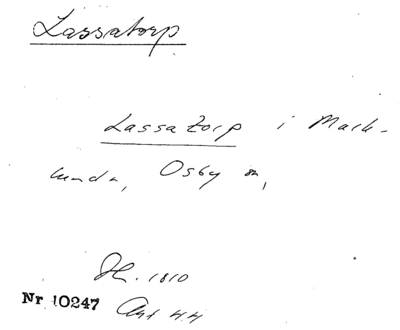 Lassatorp
Lassatorp i Mark-
hunda, Osby sn,
Jb. 1810
Nr 10247 Ant 4.4